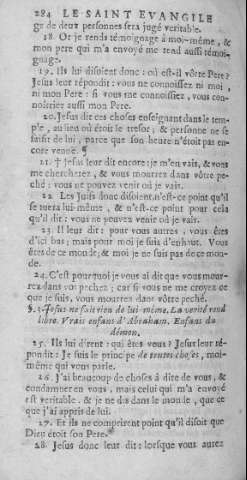 284 LE SAINT EVANGILE
ge de deux personnes sera jugé veritable.
18. Or je rends témoignage à moi-même, &
mon pere qui m'a envoyé me rend aussi témoi-
gnage.
19. Ils lui disoient donc : où est-il vôtre Pere?
Jesus leur répondit : vous ne connoissez ni moi,
ni mon Pere : si vous me connoissiez, vous con-
noîtriez aussi mon Pere.
20. Jesus dit ces choses enseignant dans le tem-
ple, au lieu où étoit le tresor; & personne ne se
saisit de lui, parce que son heure n'étoit pas en-
core venuë. ¶
21. † Jesus leur dit encore : je m'en vais, & vous
me chercherez, & vous mourrez dans vôtre pe-
ché : vous ne pouvez venir où je vais.
22. Les Juifs donc disoient : n'est-ce point qu'il
se tuera lui-même, & n'est-ce point pour cela
qu'il dit : vous ne pouvez venir où je vais.
23. Il leur dit : pour vous autres, vous êtes
d'ici bas; mais pour moi je suis d'enhaut. Vous
êtes de ce monde; & moi je ne suis pas de ce mon-
de.
24. C'est pourquoi je vous ai dit que vous mour-
rez dans vos pechez; car si vous ne me croyez ce
que je suis, vous mourrez dans vôtre peché.
§. 3. Jesus ne fait rien de lui-même. La verité rend
libre. Vrais enfans d'Abraham. Enfans du
démon.
25. Ils lui dirent : qui êtes vous? Jesus leur ré-
pondit : Je suis le principe de toutes choses, moi-
même qui vous parle.
26. J'ai beaucoup de choses à dire de vous, &
condamner en vous, mais celui qui m'a envoyé
est veritable, & je ne dis dans le monde, que ce
que j'ai appris de lui.
27. Et ils ne comprirent point qu'il disoit que
Dieu étoit son Pere.
28. Jesus donc leur dit : lorsque vous aurez